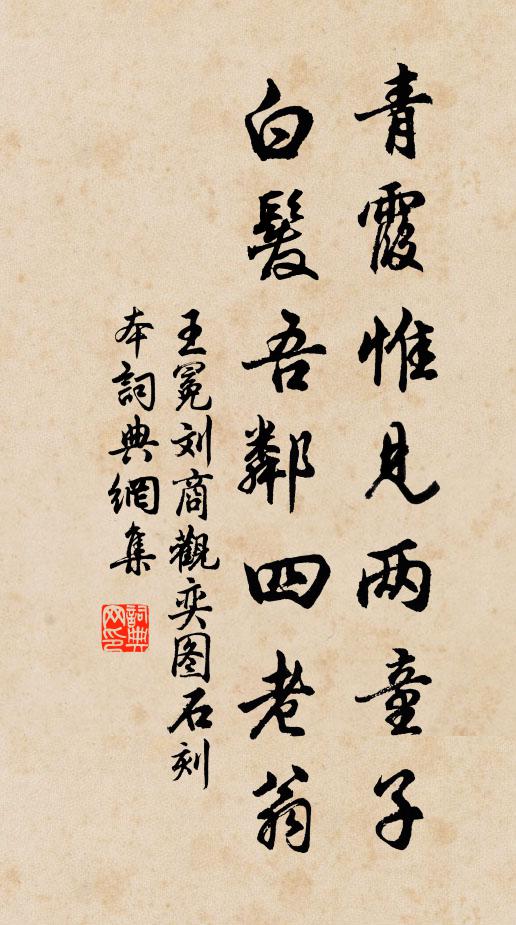 青霞惟見两童子
白髮吾鄰四老翁
王冕刘商觀奕图石刻
本詞典網集
詞典网印